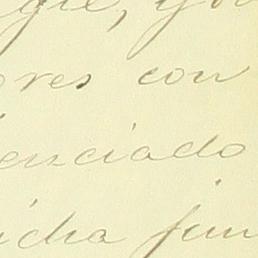 res con
enciado
icha fun